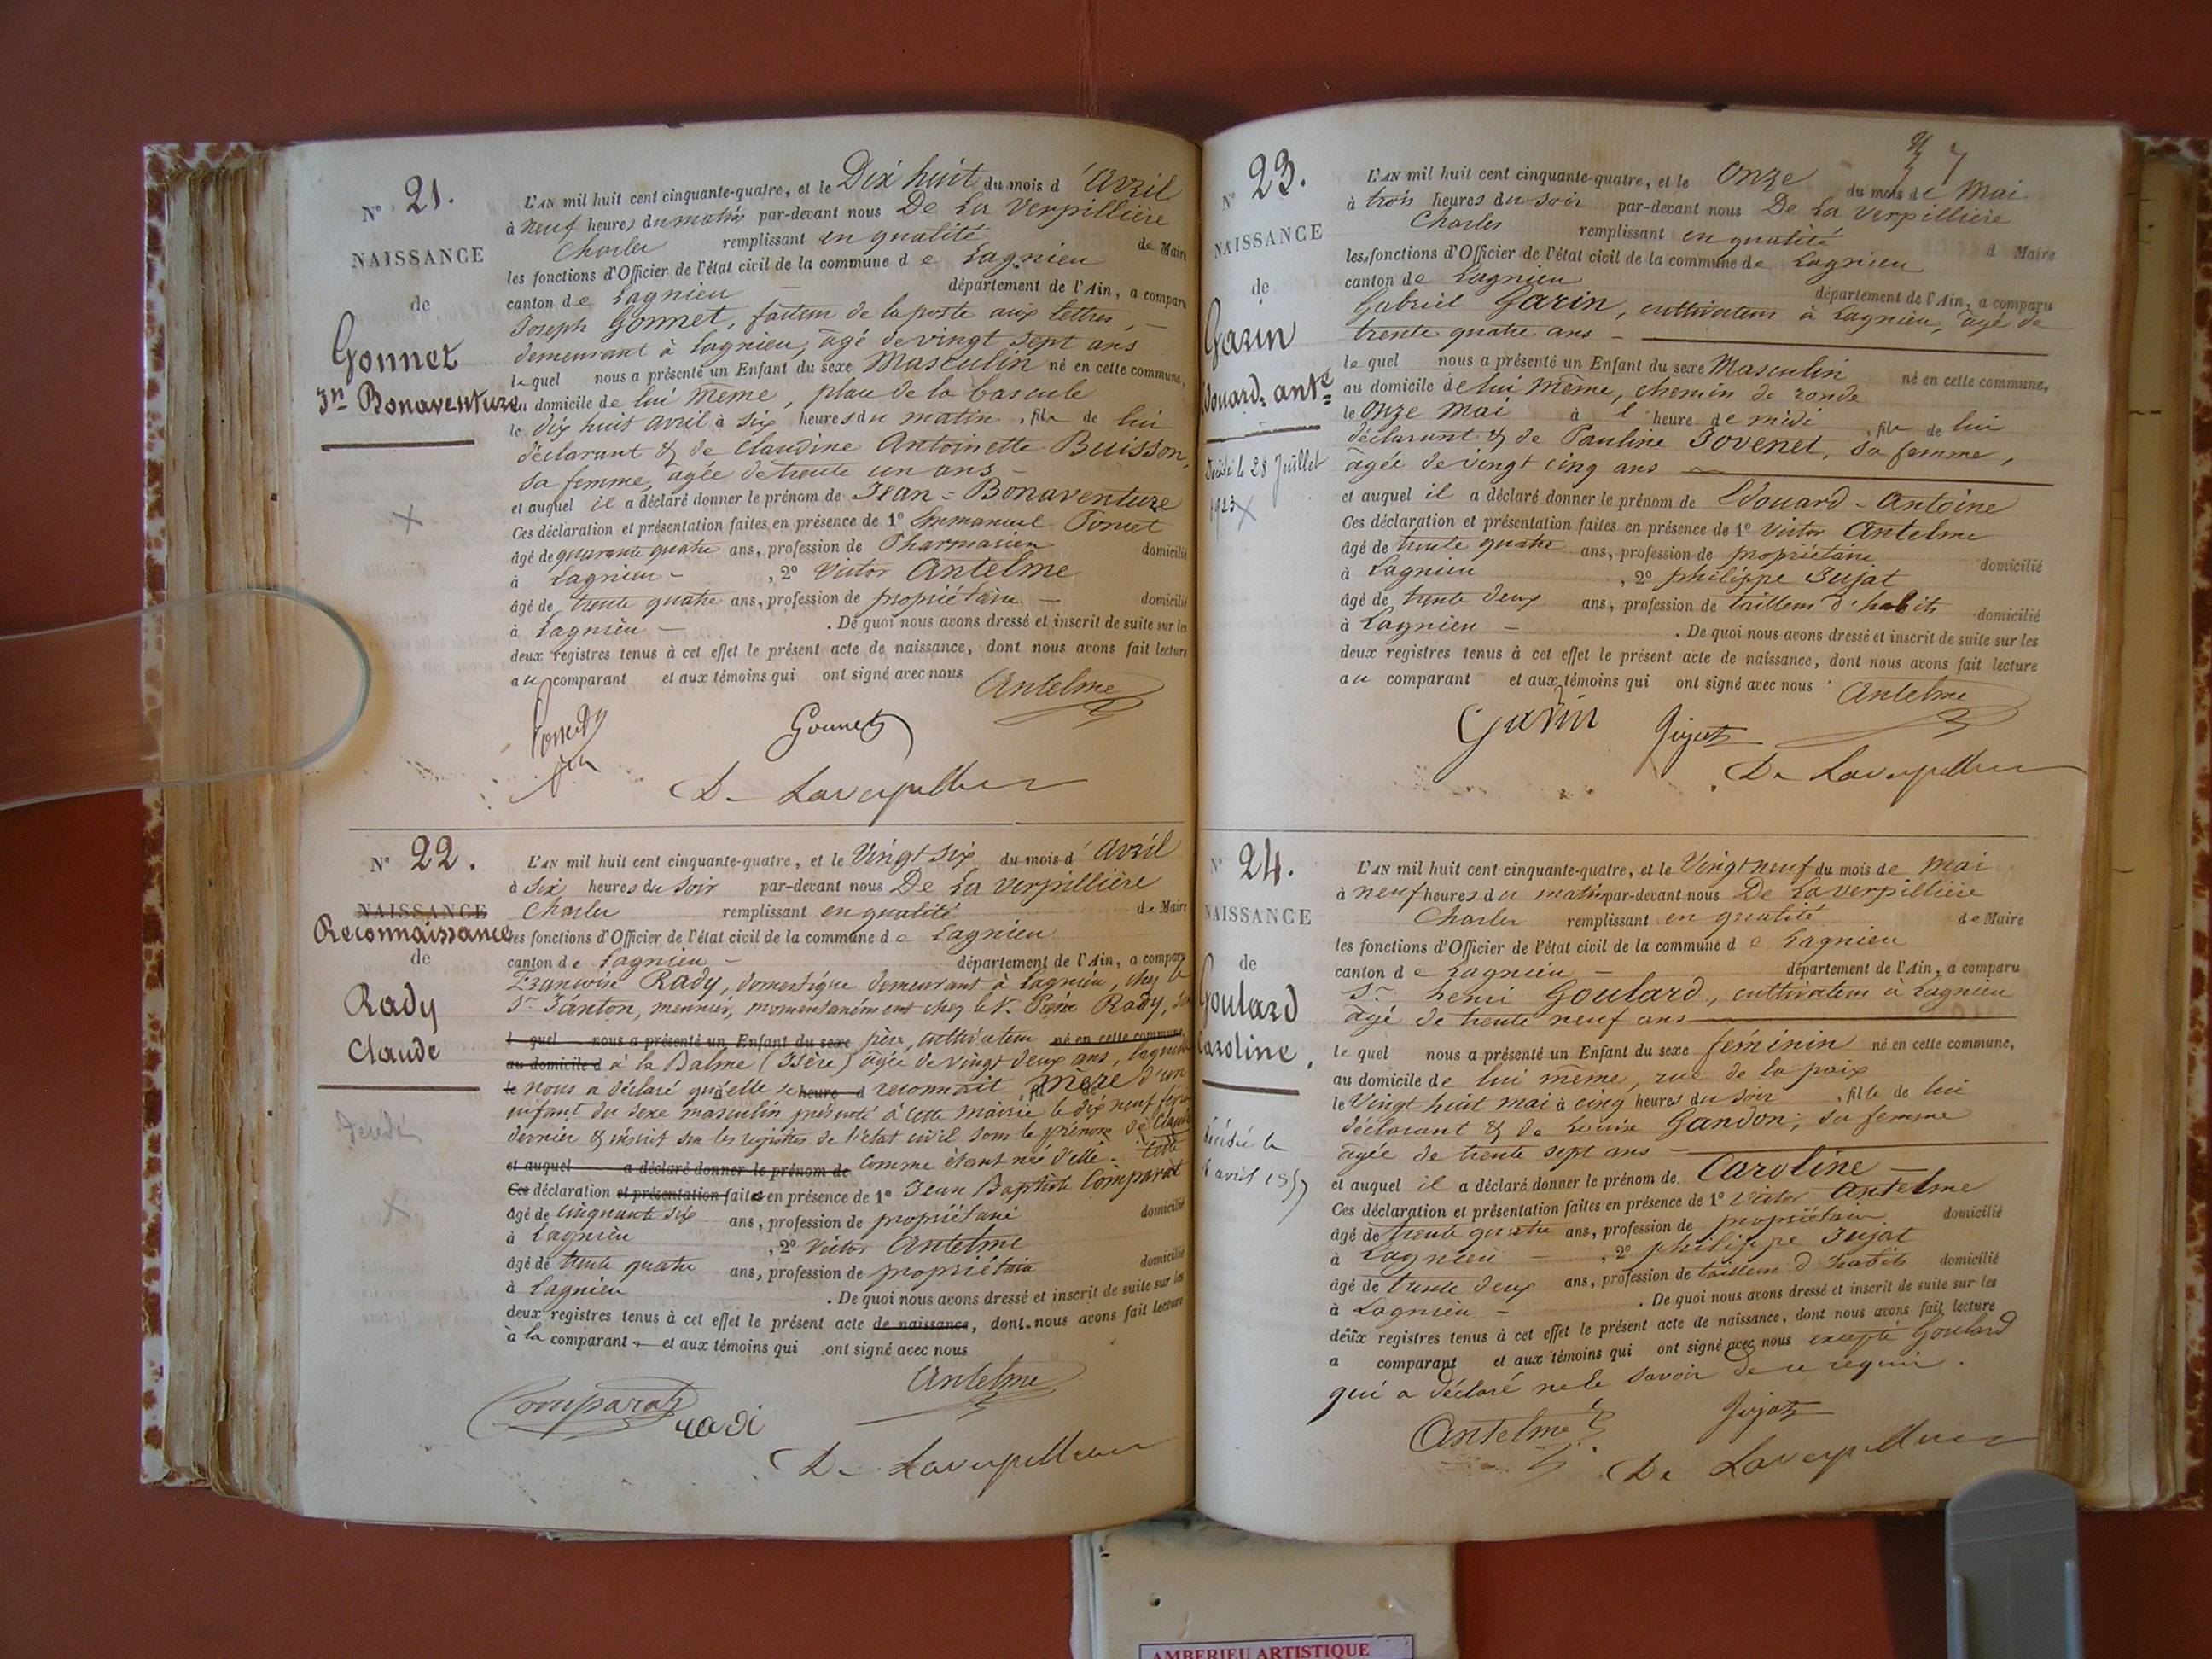 N° 21.
NAISSANCE
de
Gonnet
Jn Bonaventure
L'AN mil huit cent cinquante-quatre, et le Dix huit du mois d'Avril
à neuf heures du matin par-devant nous De La Verpillière
Charles remplissant en qualité de Maire
les fonctions d'Officier de l'état civil de la commune de Lagnieu
canton de Lagnieu département de l'Ain, a comparu
Joseph Gonnet, facteur de la poste aux lettres,
demeurant à Lagnieu, âgé de vingt sept ans
lequel nous a présenté un Enfant du sexe Masculin né en cette commune,
au domicile de lui même, place de la bascule
le dix huit avril à six heures du matin, fils de lui
déclarant & de Claudine Antoinette Buisson,
sa femme, agée de trente un ans
et auquel il a déclaré donner le prénom de Jean = Bonaventure
Ces déclaration et présentation faites en présence de 1° Emmanuel Ponet
âgé de quarante quatre ans, profession de Pharmacien domicilié
à Lagnieu - , 2° Victor Antelme
âgé de trente quatre ans, profession de propriétaire - domicilié
à Lagnieu - . De quoi nous avons dressé et inscrit de suite sur les
deux registres tenus à cet effet le présent acte de naissance, dont nous avons fait lecture
au comparant et aux témoins qui ont signé avec nous
Antelme
Gonnet
De Laverpilliere
N° 22.
NAISSANCE
Reconnaissance
de
Rady
Claude
L'AN mil huit cent cinquante-quatre, et le Vingt six du mois d'Avril
à six heures du soir par-devant nous De La Verpillière
Charles remplissant en qualité de Maire
les fonctions d'Officier de l'état civil de la commune de Lagnieu
canton de Lagnieu - département de l'Ain, a comparu
Françoise Rady, domestique demeurant à Lagnieu, chez le
Sr Janton, meunier, momentanément chez le Sr Rady, son
lequel nous a présenté un Enfant du sexe père, cultivateur né en cette commune,
au domicile d à la Balme (Isère) âgée de vingt deux ans, laquelle
le nous a déclaré qu'elle se heure d reconnait, fil de mère d'un
enfant du sexe masculin présenté à cette mairie le dix neuf février
dernier & inscrit sur les registres de l'état civil sous le prénom de Claude
et auquel a déclaré donner le prénom de comme étant né d'elle. Cette
Ces déclaration et présentation faites en présence de 1° Jean Baptiste Comparat
âgé de cinquante six ans, profession de propriétaire domicilié
à Lagnieu , 2° Victor Antelme
âgé de trente quatre ans, profession de propriétaire domicilié
à Lagnieu . De quoi nous avons dressé et inscrit de suite sur les
deux registres tenus à cet effet le présent acte de naissance, dont nous avons fait lecture
à la comparant et aux témoins qui ont signé avec nous
Antelme
Comparat
radi
De Laverpilliere
7
N° 23.
NAISSANCE
de
Garin
Edouard = ante
Décédé le 28 Juillet
1923
L'AN mil huit cent cinquante-quatre, et le Onze du mois de Mai
à trois heures du soir par-devant nous De La Verpillière
Charles remplissant en qualité d Maire
les fonctions d'Officier de l'état civil de la commune de Lagnieu
canton de Lagnieu département de l'Ain, a comparu
Gabriel Garin, cultivateur à Lagnieu, âgé de
trente quatre ans -
lequel nous a présenté un Enfant du sexe Masculin né en cette commune,
au domicile de lui même, chemin de ronde
le Onze Mai à l'heure de midi, fils de lui
déclarant & de Pauline Jovenet, sa femme,
âgée de vingt cinq ans
et auquel il a déclaré donner le prénom de Edouard - Antoine
Ces déclaration et présentation faites en présence de 1° Victor Antelme
âgé de trente quatre ans, profession de propriétaire domicilié
à Lagnieu , 2° philippe Jujat
âgé de trente deux ans, profession de tailleur d'habits domicilié
à Lagnieu - . De quoi nous avons dressé et inscrit de suite sur les
deux registres tenus à cet effet le présent acte de naissance, dont nous avons fait lecture
au comparant et aux témoins qui ont signé avec nous
Antelme
Garin
Jujat
De Laverpilliere
N° 24.
NAISSANCE
de
Goulard
Caroline,
décédée le
avril 1857
L'AN mil huit cent cinquante-quatre, et le Vingt neuf du mois de mai
à neuf heures du matin par-devant nous De Laverpillière
Charles remplissant en qualité de Maire
les fonctions d'Officier de l'état civil de la commune de Lagnieu
canton de Lagnieu - département de l'Ain, a comparu
Sr henri Goulard, cultivateur à Lagnieu
âgé de trente neuf ans
lequel nous a présenté un Enfant du sexe féminin né en cette commune,
au domicile de lui même, rue de la paix
le Vingt huit mai à cinq heures du soir, fille de lui
déclarant & de Louise Gandon, sa femme
agée de trente sept ans -
et auquel il a déclaré donner le prénom de Caroline -
Ces déclaration et présentation faites en présence de 1° Victor Antelme
âgé de trente quatre ans, profession de propriétaire domicilié
à Lagnieu - , 2° philippe Jujat
âgé de trente deux ans, profession de tailleur d'habits domicilié
à Lagnieu - . De quoi nous avons dressé et inscrit de suite sur les
deux registres tenus à cet effet le présent acte de naissance, dont nous avons fait lecture
a comparant et aux témoins qui ont signé avec nous excepté Goulard
qui a déclaré ne le savoir de ce requis.
Antelme
Jujat
De Laverpilliere
AMBERIEU ARTISTIQUE